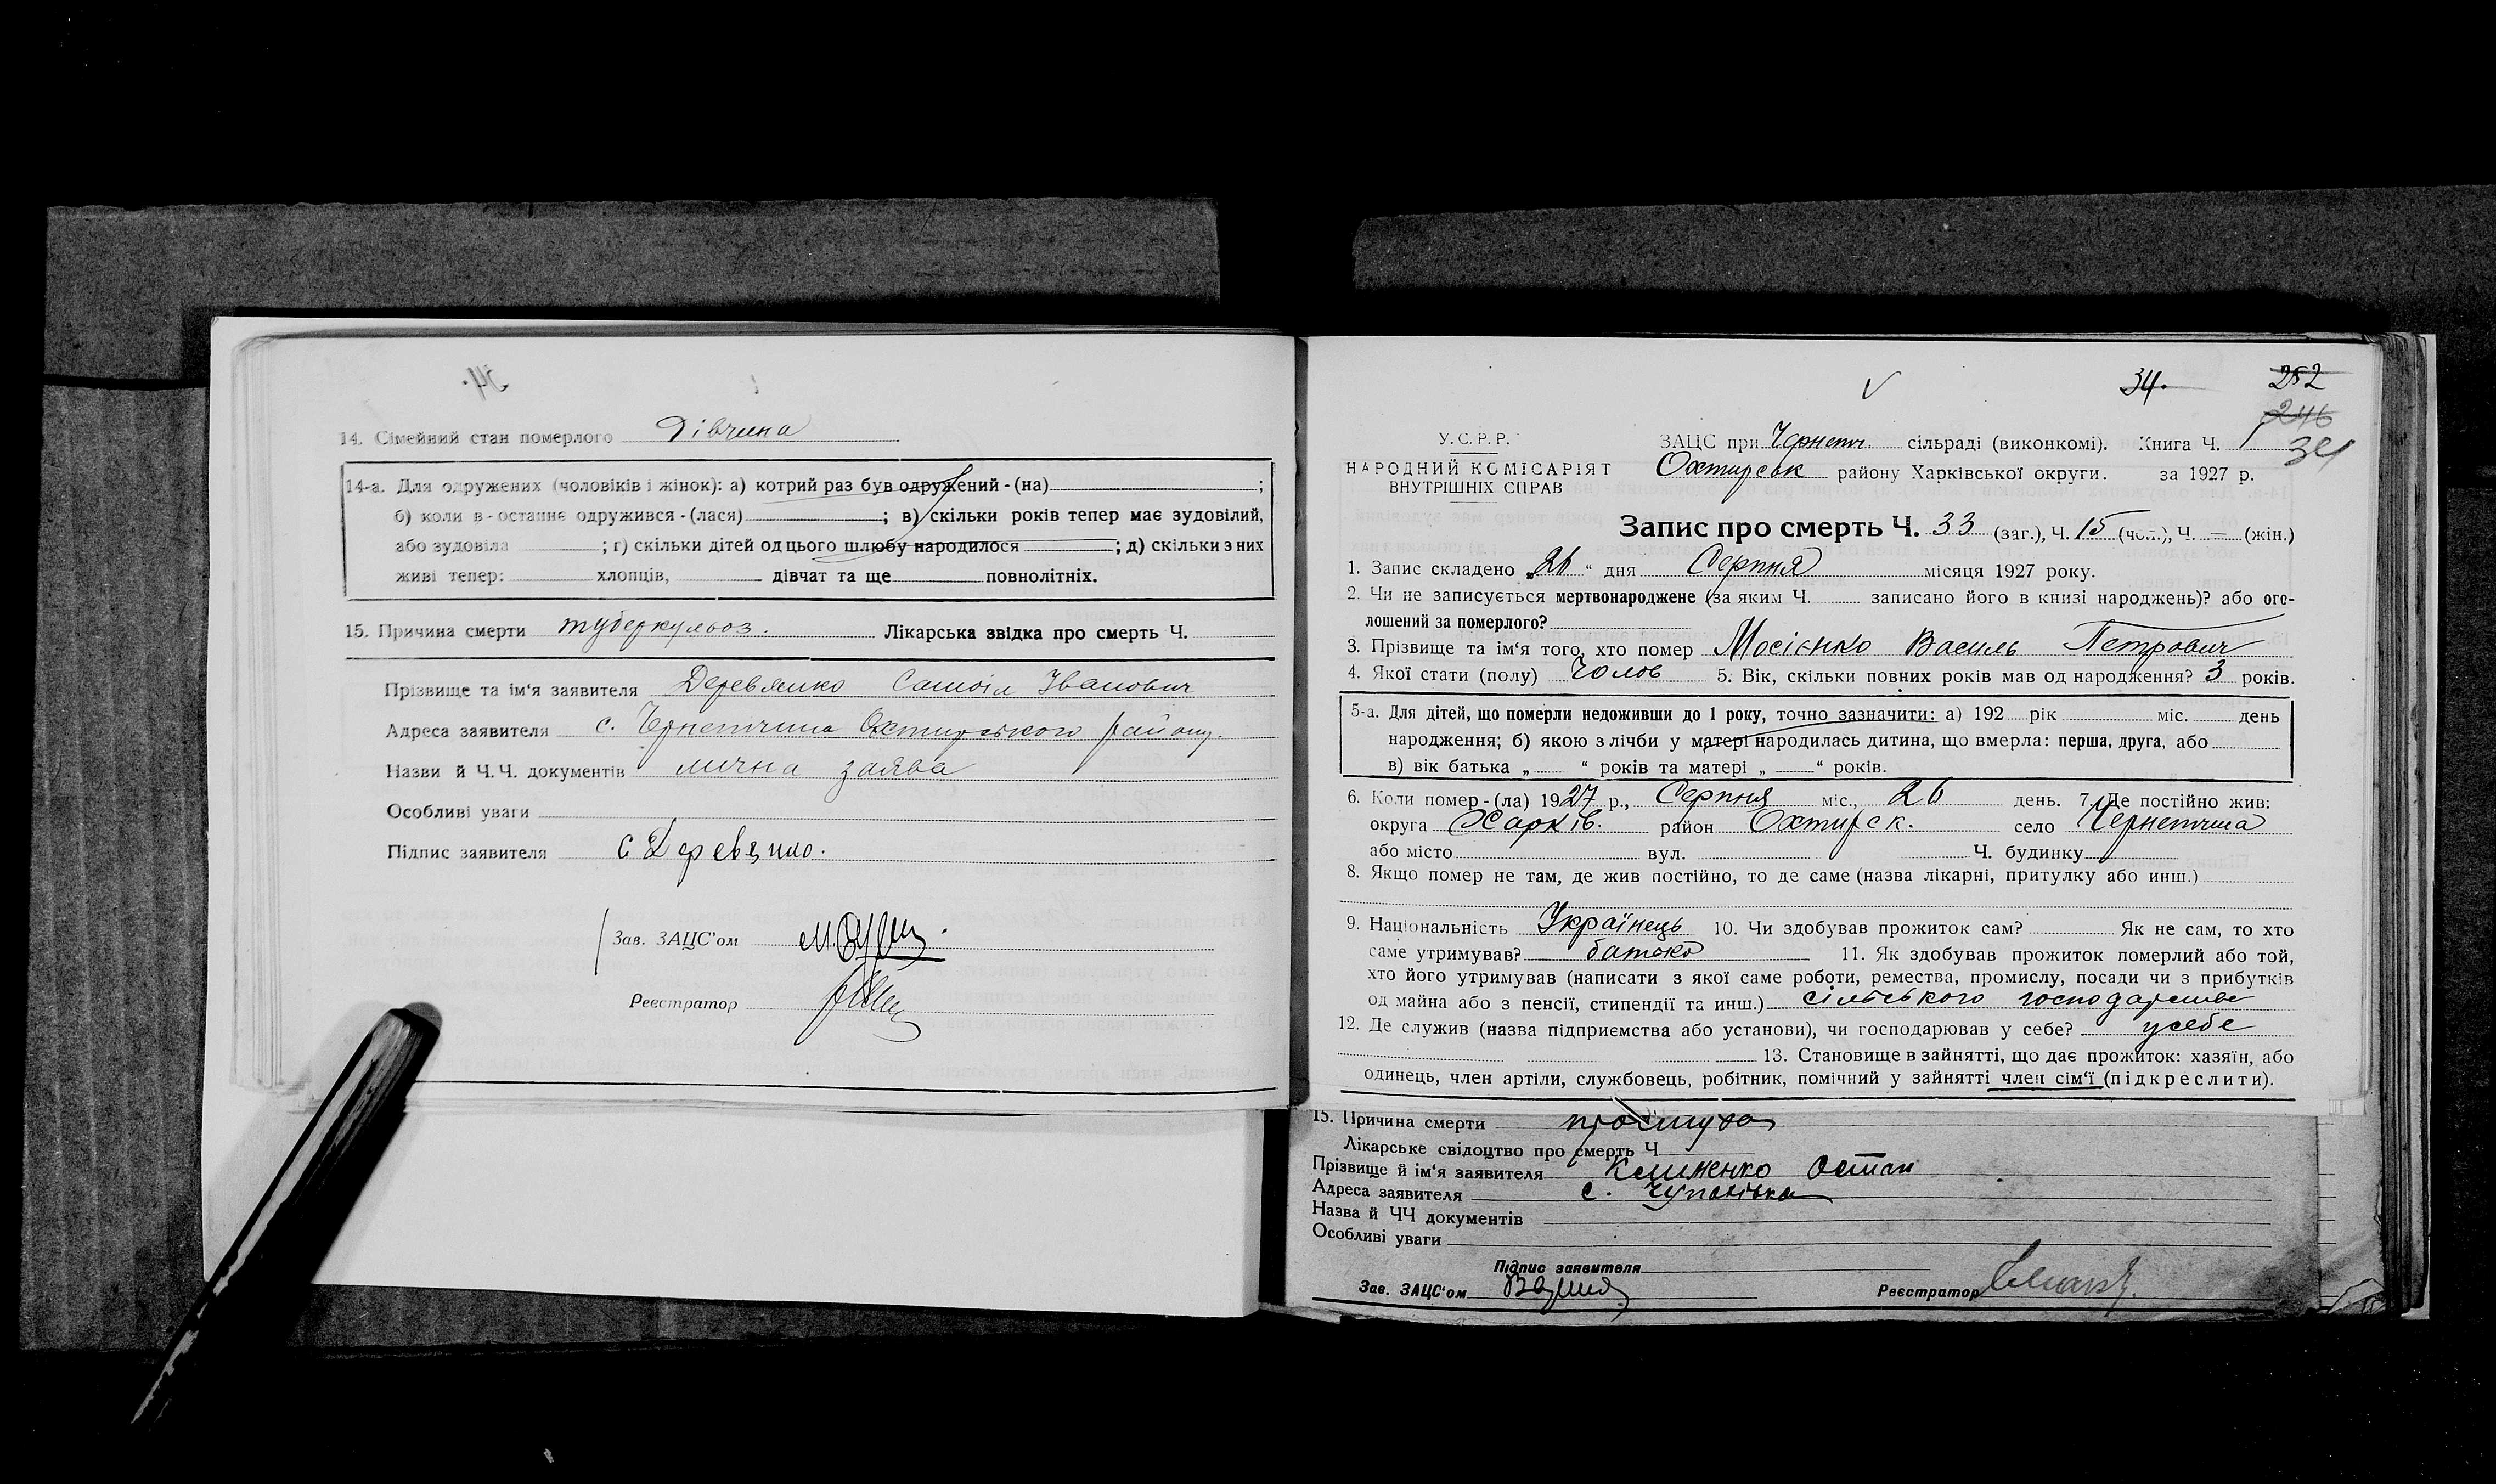 14. Сімейний стан померлого Дівчина
14-а. Для одружених (чоловіків і жінок): а) котрий раз був одружений - (на) ;
б) коли в - останнє одружився - (лася) ; в) скільки років тепер має зудовілий,
або зудовіла ; г) скільки дітей од цього шлюбу народилося ; д) скільки з них
живі тепер: хлопців, дівчат та ще повнолітніх.
15. Причина смерти туберкульоз. Лікарська звідка про смерть Ч.
Прізвище та ім'я заявителя Деревянко Самоіл Іванович
Адреса заявителя с. Чернетчина Охтирського району.
Назви й Ч.Ч. документів лична заява
Особливі уваги
Підпис заявителя С Деревянко.
Зав. ЗАЦС'ом
Реєстратор
34. 252
246
У.С.Р.Р. ЗАЦС при Чернетч. сільраді (виконкомі). Книга Ч. 1
34
НАРОДНИЙ КОМІСАРІЯТ Охтирськ району Харківської округи. за 1927 р.
ВНУТРІШНІХ СПРАВ
Запис про смерть Ч. 33 (заг.), Ч. 15 (чол.), Ч. — (жін.)
1. Запис складено „26“ дня Серпня місяця 1927 року.
2. Чи не записується мертвонароджене (за яким Ч. записано його в книзі народжень)? або ого-
лошений за померлого?
3. Прізвище та ім'я того, хто помер Мосієнко Василь Петрович
4. Якої стати (полу) Чолов 5. Вік, скільки повних років мав од народження? 3 років.
5-а. Для дітей, що померли недоживши до 1 року, точно зазначити: а) 192 рік міс. день
народження; б) якою з лічби у матері народилась дитина, що вмерла: перша, друга, або
в) вік батька „ “ років та матері „ “ років.
6. Коли помер - (ла) 1927 р., Серпня міс., 26 день. 7. Де постійно жив:
округа Харків. район Охтирськ. село Чернетчина
або місто вул. Ч. будинку
8. Якщо помер не там, де жив постійно, то де саме (назва лікарні, притулку або инш.)
9. Національність Українець 10. Чи здобував прожиток сам? Як не сам, то хто
саме утримував? батько 11. Як здобував прожиток померлий або той,
хто його утримував (написати з якої саме роботи, ремества, промислу, посади чи з прибутків
од майна або з пенсії, стипендії та инш.) сільського господарства
12. Де служив (назва підприємства або установи), чи господарював у себе? усебе
13. Становище в зайнятті, що дає прожиток: хазяїн, або
одинець, член артіли, службовець, робітник, помічний у зайнятті член сім'ї (підкреслити).
15. Причина смерти простуда
Лікарське свідоцтво про смерть Ч
Прізвище й ім'я заявителя Клименко Остап
Адреса заявителя с. Чупахівка
Назва й ЧЧ документів
Особливі уваги
Підпис заявителя
Зав. ЗАЦС'ом Реєстратор